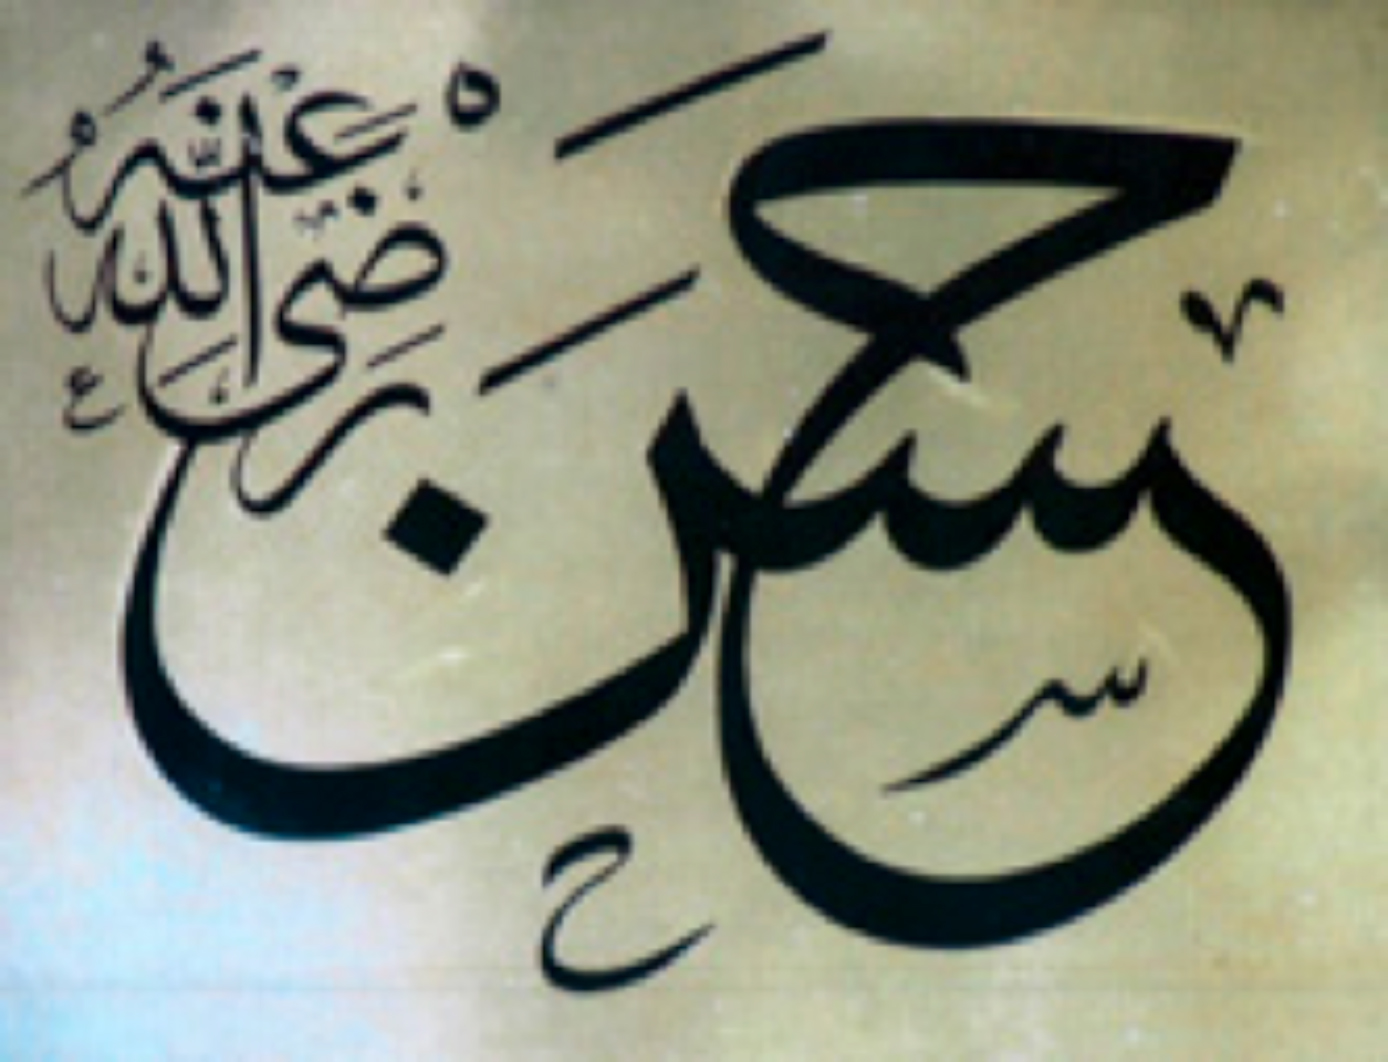 حسن
رضى الله عنه